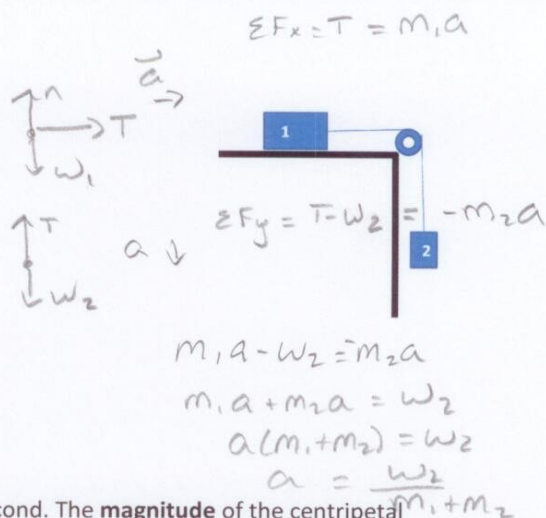 ΣFx = T = m₁a
a →
n
T
w₁
1
T
a ↓
w₂
ΣFy = T - w₂ = -m₂a
2
m₁a - w₂ = -m₂a
m₁a + m₂a = w₂
a(m₁+m₂) = w₂
a = w₂/(m₁+m₂)
cond. The magnitude of the centripetal